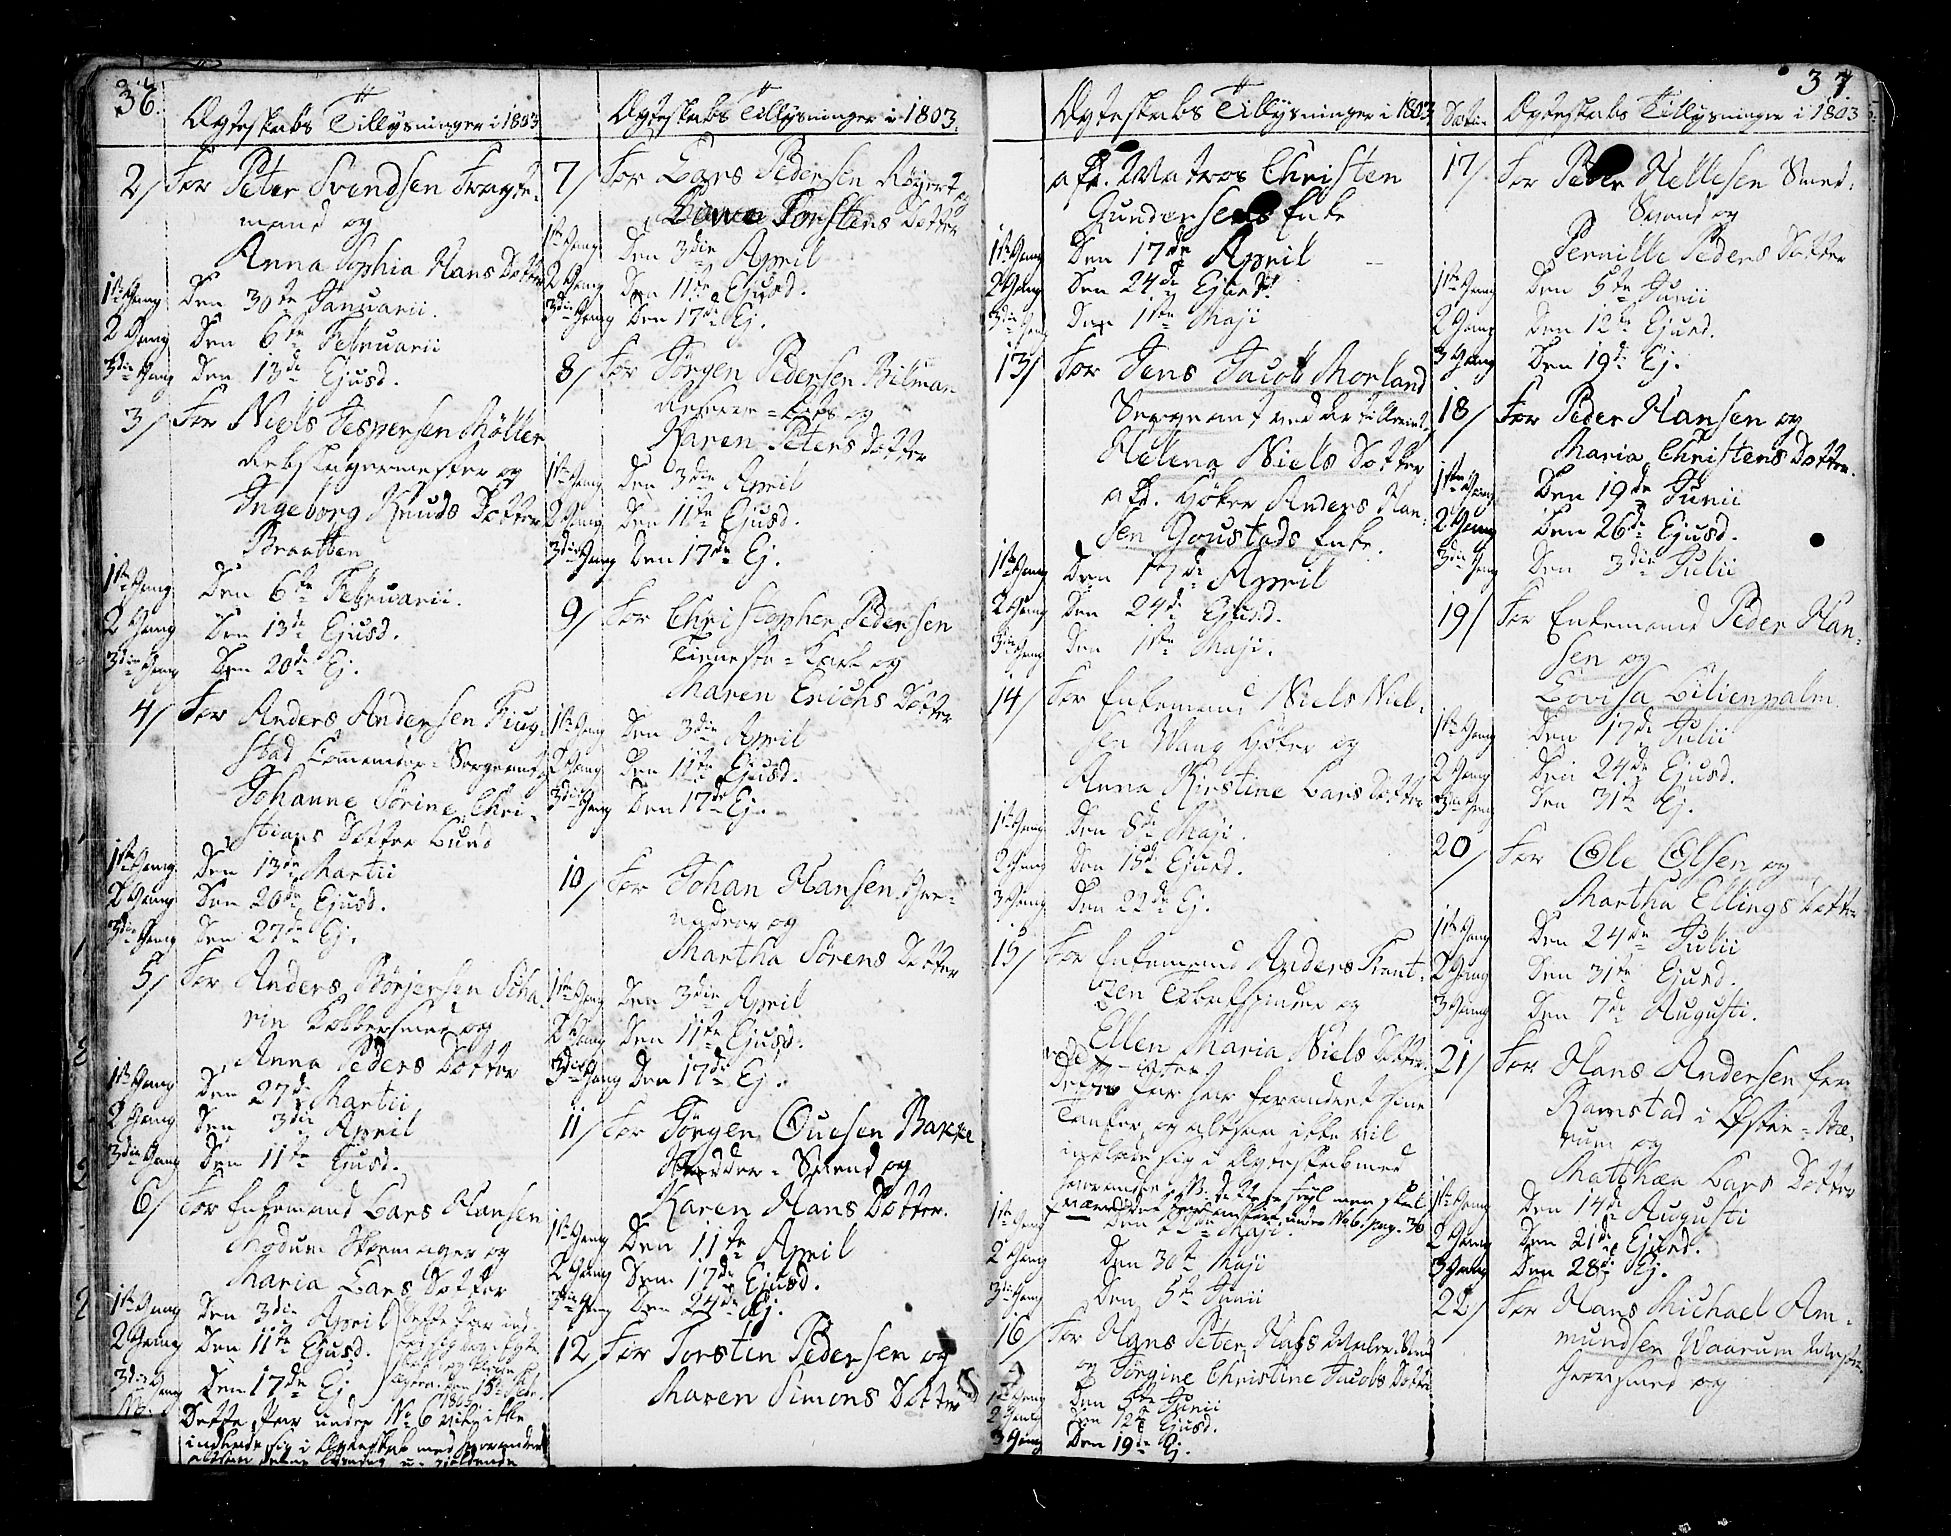 36.
Ægteskabs Tillysninger i 1803
2/ For Peter Svendsen Fragte-
mand og
Anna Sophia Hans Dotter
1ste Gang Den 30te Januarii.
2 Gang Den 6te Februarii
3die Gang Den 13de Ejusd.
3/ For Niels Jespersen Møller
Rebslagermester og
Ingeborg Knuds Dotter
Braatten
1ste Gang Den 6te Februarii.
2 Gang Den 13de Ejusd.
3die Gang Den 20de Ej.
4/ For Anders Andersen
stad Commandeer-Sergeant og
Johanne Sørine Chri-
stians Dotter Lund
1ste Gang Den 13de Martii
2 Gang Den 20de Ejusd.
3die Gang Den 27de Ej.
5/ For Anders Børjesen Scha-
rin Kobbersmed og
Anna Peders Dotter
1ste Gang Den 27de Martii
2 Gang Den 3die April
3die Gang Den 11te Ejusd.
6/ For Enkemand Lars Hansen
Modum Skoemager og
Maria Lars Dotter
1ste Gang Den 3die April
2 Gang Den 11te Ejusd.
3die Gang Den 17de Ej.
Dette Par
1803
Dette Par under No 6 vil ikke
indlade sig i Ægteskab med hverandre
Ægteskabs Tillysninger i 1803.
7/ For Lars Pedersen Røgert og
Torstens Dotter
1ste Gang Den 3die April
2 Gang Den 11te Ejusd.
3die Gang Den 17de Ej.
8/ For Jørgen Pedersen Bilman
og
Karen Peters Dotter
1ste Gang Den 3die April
2 Gang Den 11te Ejusd.
3die Gang Den 17de Ej.
9/ For Christopher Pedersen
Karl og
Maren Erichs Dotter
1ste Gang Den 3die April
2 Gang Den 11te Ejusd.
3die Gang Den 17de Ej.
10/ For Johan Hansen Gre-
nadeer og
Martha Sørens Dotter
1ste Gang Den 3die April
2 Gang Den 11te Ejusd.
3die Gang Den 17de Ej.
11/ For Jørgen Ouesen Bakke
Svend og
Karen Hans Dotter.
1ste Gang Den 11te April
2 Gang Den 17de Ejusd.
3die Gang Den 24de Ej.
12 For Torsten Pedersen og
Maren Simons Dotter
Ægteskabs Tillysninger i 1803
afd. Matros Christen
Gundersens Enke
1ste Gang Den 17de April
2 Gang Den 24de Ejusd.
3die Gang Den 1ste Maji
13/ For Jens Jacob Morland
Sergeant ved Artilleriet og
Helena Niels Dotter
afd. Høker Anders Han-
sen Goustads Enke.
1ste Gang Den 17de April
2 Gang Den 24de Ejusd.
3die Gang Den 1ste Maji.
14/ For Enkemand Niels Niel-
sen Wang Høker og
Anna Kirstine Lars Dotter
1ste Gang Den 8de Maji.
2 Gang Den 15de Ejusd.
3 Gang Den 22de Ej.
15/ For Enkemand Anders Frant-
zen Tobakspinder og
Ellen Maria Niels Dotter
Dette Par har forandret sine
Tanker og altsaa ikke vil
indlade sig i Ægteskab med
hverandre. NB. dette er feyl men skal
være under No 6. pag. 36
1ste Gang Den Maji.
2 Gang Den 30te Maji
3die Gang Den 5te Junii
16/ For Hans Peter Hals Maler-Svend
og Jørgine Christine Jacobs Dotter
1ste Gang Den 5te Junii
2 Gang Den 12te Ejusd.
3 Gang Den 19de Ej.
37.
Ægteskabs Tillysninger i 1803
17/ For Peder Hellesen Smed-
Svend og
Pernille Peders Dotter
1ste Gang Den 5te Junii
2 Gang Den 12te Ejusd.
3 Gang Den 19de Ej.
18/ For Peder Hansen og
Maria Christens Dotter.
1ste Gang Den 19de Junii
2 Gang Den 26de Ejusd.
3die Gang Den 3die Julii
19/ For Enkemand Peder Han-
sen og
Lovisa Lilienpalm.
1ste Gang Den 17de Julii
2 Gang Den 24de Ejusd.
3die Gang Den 31te Ej.
20/ For Ole Olsen og
Martha Ellings Dotter
1ste Gang Den 24de Julii
2 Gang Den 31te Ejusd.
3 Gang Den 7de Augusti.
21/ For Hans Andersen fra
Ramstad i Østre-Bæ-
rum og
Matthæa Lars Dotter
1ste Gang Den 14de Augusti
2 Gang Den 21de Ejusd.
3 Gang Den 28de Ej.
22/ For Hans Michael Am-
mundsen Waarum
og